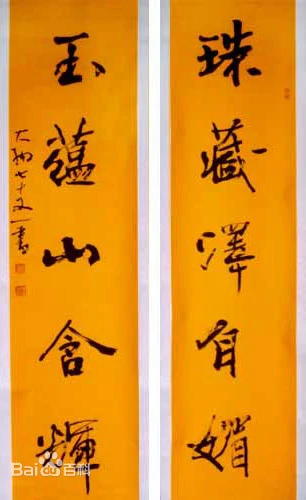 珠藏澤自媚
玉蘊山含輝
七十又一書
Bai百科